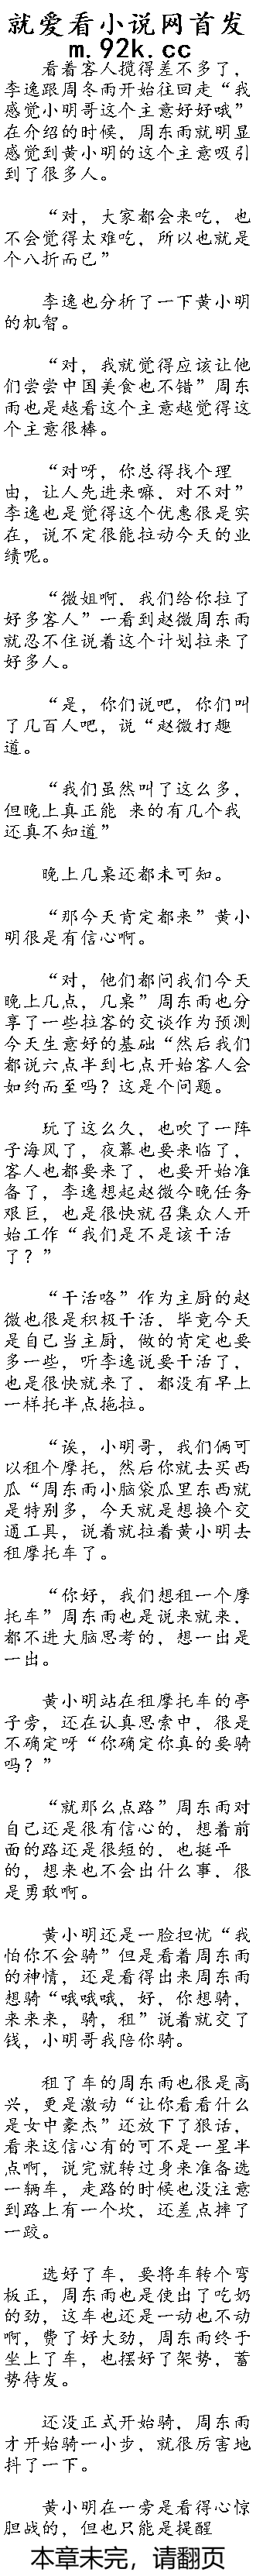 就爱看小说网首发
m.92k.cc
看着客人揽得差不多了，
李逸跟周冬雨开始往回走“我
感觉小明哥这个主意好好哦”
在介绍的时候，周东雨就明显
感觉到黄小明的这个主意吸引
到了很多人。
“对，大家都会来吃，也
不会觉得太难吃，所以也就是
个八折而已”
李逸也分析了一下黄小明
的机智。
“对，我就觉得应该让他
们尝尝中国美食也不错”周东
雨也是越看这个主意越觉得这
个主意很棒。
“对呀，你总得找个理
由，让人先进来嘛，对不对”
李逸也是觉得这个优惠很是实
在，说不定很能拉动今天的业
绩呢。
“微姐啊，我们给你拉了
好多客人”一看到赵微周东雨
就忍不住说着这个计划拉来了
好多人。
“是，你们说吧，你们叫
了几百人吧，说“赵微打趣
道。
“我们虽然叫了这么多，
但晚上真正能 来的有几个我
还真不知道”
晚上几桌还都未可知。
“那今天肯定都来”黄小
明很是有信心啊。
“对，他们都问我们今天
晚上几点，几桌”周东雨也分
享了一些拉客的交谈作为预测
今天生意好的基础“然后我们
都说六点半到七点开始客人会
如约而至吗？这是个问题。
玩了这么久，也吹了一阵
子海风了，夜幕也要来临了，
客人也都要来了，也要开始准
备了，李逸想起赵微今晚任务
艰巨，也是很快就召集众人开
始工作“我们是不是该干活
了？”
“干活咯”作为主厨的赵
微也很是积极干活，毕竟今天
是自己当主厨，做的肯定也要
多一些，听李逸说要干活了，
也是很快就来了，都没有早上
一样托半点拖拉。
“诶，小明哥，我们俩可
以租个摩托，然后你就去买西
瓜“周东雨小脑袋瓜里东西就
是特别多，今天就是想换个交
通工具，说着就拉着黄小明去
租摩托车了。
“你好，我们想租一个摩
托车”周东雨也是说来就来，
都不进大脑思考的，想一出是
一出。
黄小明站在租摩托车的亭
子旁，还在认真思索中，很是
不确定呀“你确定你真的要骑
吗？”
“就那么点路”周东雨对
自己还是很有信心的，想着前
面的路还是很短的，也挺平
的，想来也不会出什么事，很
是勇敢啊。
黄小明还是一脸担忧“我
怕你不会骑”但是看着周东雨
的神情，还是看得出来周东雨
想骑“哦哦哦，好，你想骑，
来来来，骑，租”说着就交了
钱，小明哥我陪你骑。
租了车的周东雨也很是高
兴，更是激动“让你看看什么
是女中豪杰”还放下了狠话，
看来这信心有的可不是一星半
点啊，说完就转过身来准备选
一辆车，走路的时候也没注意
到路上有一个坎，还差点摔了
一跤。
选好了车，要将车转个弯
板正，周东雨也是使出了吃奶
的劲，这车也还是一动也不动
啊，费了好大劲，周东雨终于
坐上了车，也摆好了架势，蓄
势待发。
还没正式开始骑，周东雨
才开始骑一小步，就很厉害地
抖了一下。
黄小明在一旁是看得心惊
胆战的，但也只能是提醒
本章未完，请翻页